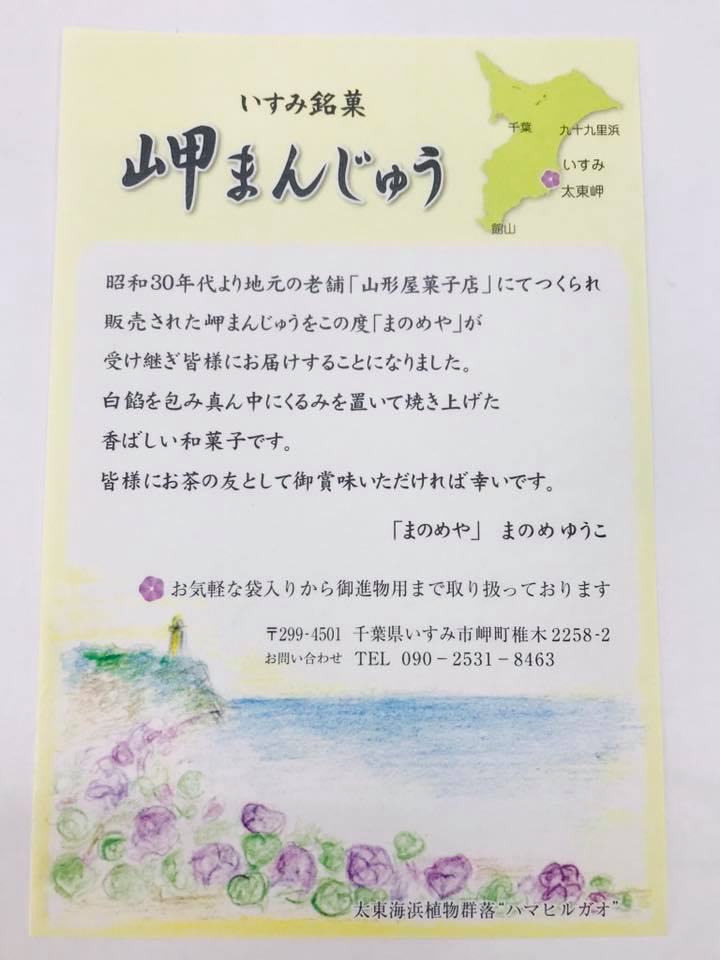 いすみ銘菓
岬まんじゅう
千葉
九十九里浜
いすみ
太東岬
館山
昭和30年代より地元の老舗「山形屋菓子店」にてつくられ
販売された岬まんじゅうをこの度「まのめや」が
受け継ぎ皆様にお届けすることになりました。
白餡を包み真ん中にくるみを置いて焼き上げた
香ばしい和菓子です。
皆様にお茶の友として御賞味いただければ幸いです。
「まのめや」 まのめ ゆうこ
お気軽な袋入りから御進物用まで取り扱っております
〒299-4501 千葉県いすみ市岬町椎木2258-2
お問い合わせ TEL 090-2531-8463
太東海浜植物群落“ハマヒルガオ”